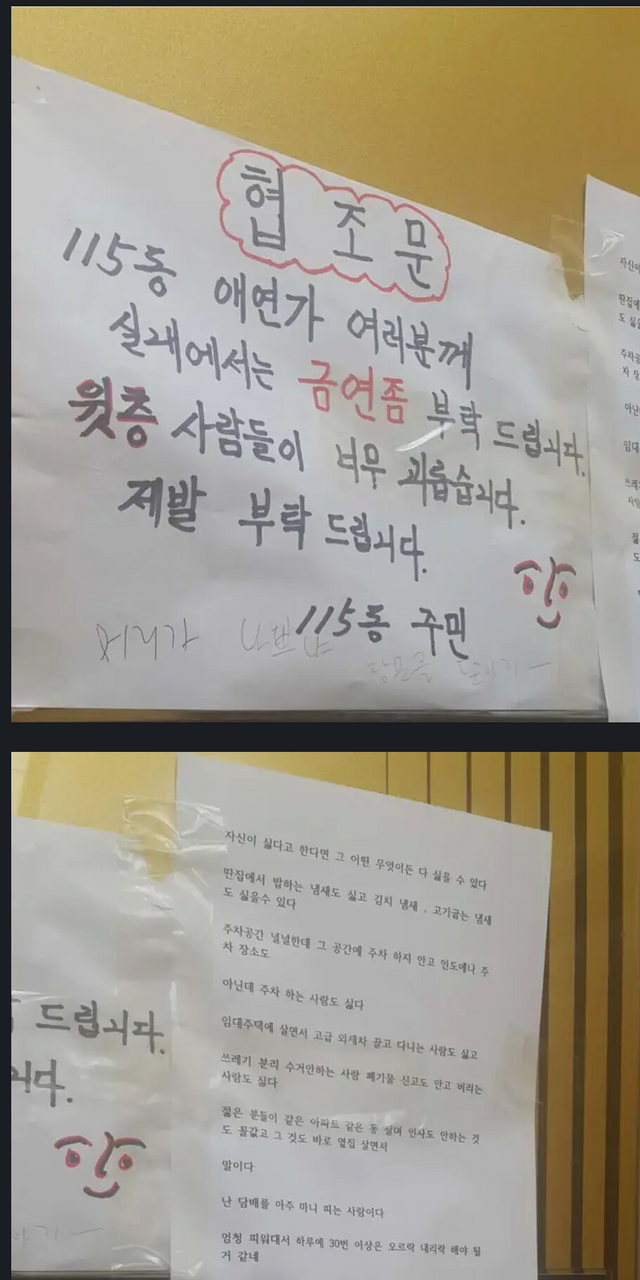 협조문
115동 애연가 여러분께
실내에서는 금연좀 부탁 드립니다.
윗층 사람들이 너무 괴롭습니다.
제발 부탁 드립니다.
115동 주민
머리가 나쁘냐
자신이
딴집에
도 싫을
주차공
차 장
아닌
임대
쓰레
사람
젊
도
자신이 싫다고 한다면 그 어떤 무엇이든 다 싫을 수 있다
딴집에서 밥하는 냄새도 싫고 김치 냄새 , 고기굽는 냄새
도 싫을수 있다
주차공간 널널한데 그 공간에 주차 하지 안고 인도에나 주
차 장소도
아닌데 주차 하는 사람도 싫다
임대주택에 살면서 고급 외제차 끌고 다니는 사람도 싫고
쓰레기 분리 수거안하는 사람 폐기물 신고도 안고 버리는
사람도 싫다
젊은 분들이 같은 아파트 같은 동 살며 인사도 안하는 것
도 꼴값고 그 것도 바로 옆집 살면서
말이다
난 담배를 아주 마니 피는 사람이다
엄청 피워대서 하루에 30번 이상은 오르락 내리락 해야 될
거 같네
드립니다.
니다.